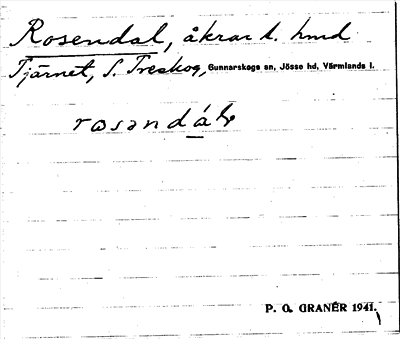 Rosendal, åkrar t. hmd
Tjärnet, S. Treskog, Gunnarskogs sn, Jösse hd, Värmlands l.
rosandál
P. G. GRANÉR 1941.